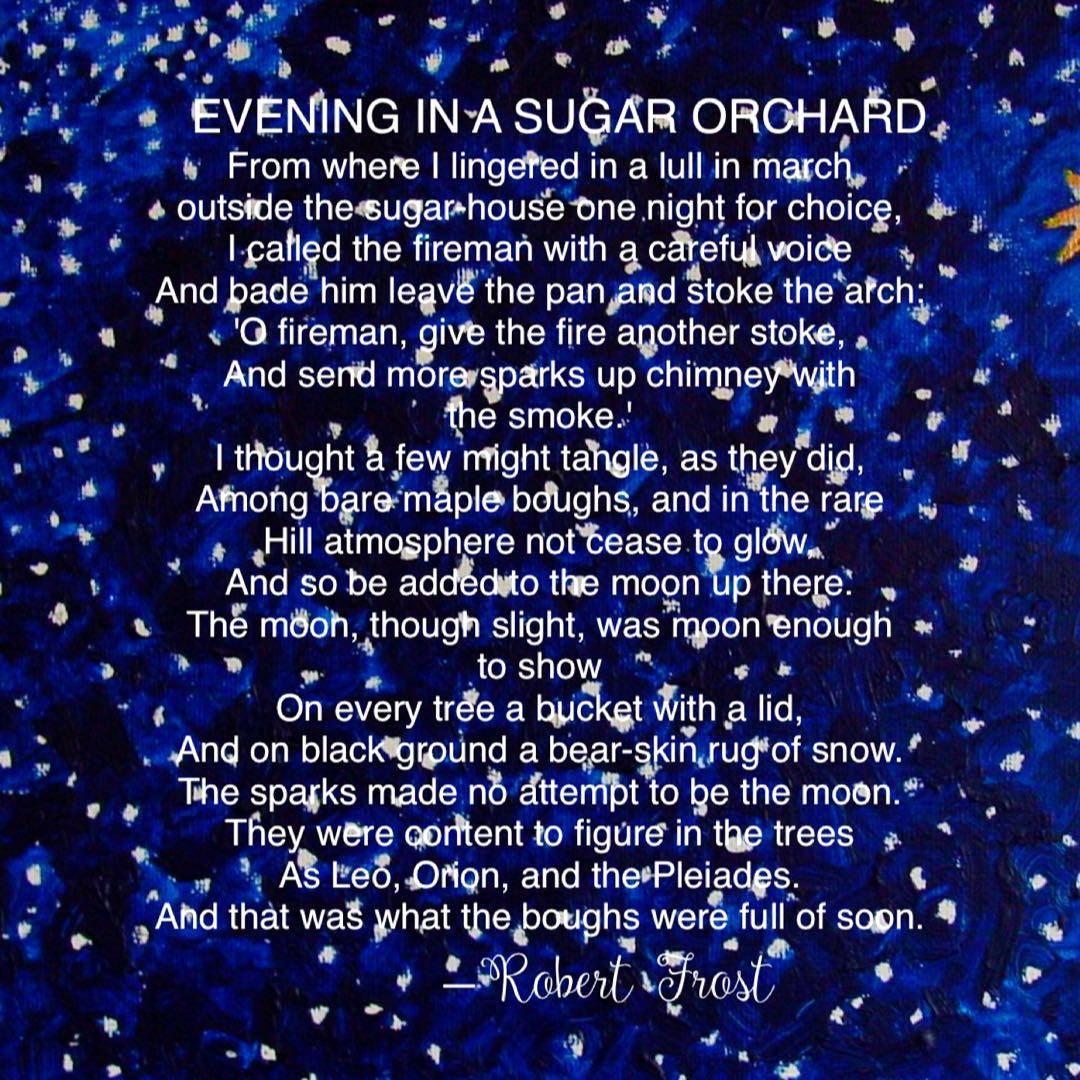 EVENING IN A SUGAR ORCHARD
From where I lingered in a lull in march
outside the sugar-house one night for choice,
I called the fireman with a careful voice
And bade him leave the pan and stoke the arch:
'O fireman, give the fire another stoke,
And send more sparks up chimney with
the smoke.'
I thought a few might tangle, as they did,
Among bare maple boughs, and in the rare
Hill atmosphere not cease to glow,
And so be added to the moon up there.
The moon, though slight, was moon enough
to show
On every tree a bucket with a lid,
And on black ground a bear-skin rug of snow.
The sparks made no attempt to be the moon.
They were content to figure in the trees
As Leo, Orion, and the Pleiades.
And that was what the boughs were full of soon.
—Robert Frost